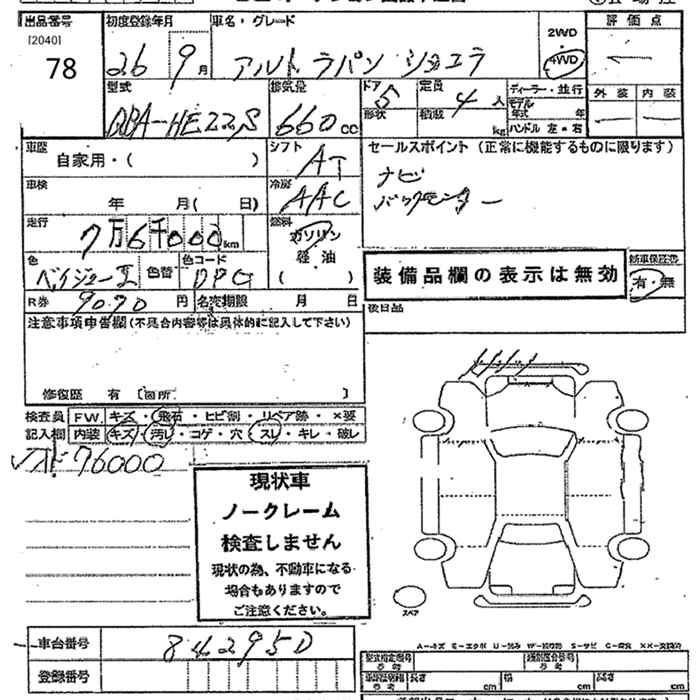 出品番号 初度登録年月 車名・グレード 評価点
[2040]
78 26 9月 アルト ラパン ショコラ 2WD 4WD
型式 排気量 ドア 形状 定員 積載 ディーラー・並行 外装 内装
DBA-HE22S 660cc 5 4人 kg モデル年式 年 ハンドル 左・右
車歴 シフト セールスポイント (正常に機能するものに限ります)
自家用・( ) AT ナビ
車検 冷房 バックモニター
年 月 ( 日) AAC
走行 燃料
7万6千000km ガソリン
色 色替 色コード 軽油 装備品欄の表示は無効 新車保証書
( ) 有・無
R券 9090円 名変期限 月 日 後日品
注意事項申告欄(不具合内容等は具体的に記入して下さい)
修復歴 有 〔箇所 〕
検査員 FW. キズ・飛石・ヒビ割・リペア跡・×要
記入欄 内装 キズ・汚レ・コゲ・穴・スレ・キレ・破レ
76000
現状車
ノークレーム
検査しません
現状の為、不動車になる
場合もありますので
ご注意ください。
スペア
車台番号 842950
A-キズ E-エクボ U-凹み W-補修跡 S-サビ C-腐食 XX-交換済
登録番号 型式指定番号 類別区分番号
長さ cm 幅 cm 高さ cm